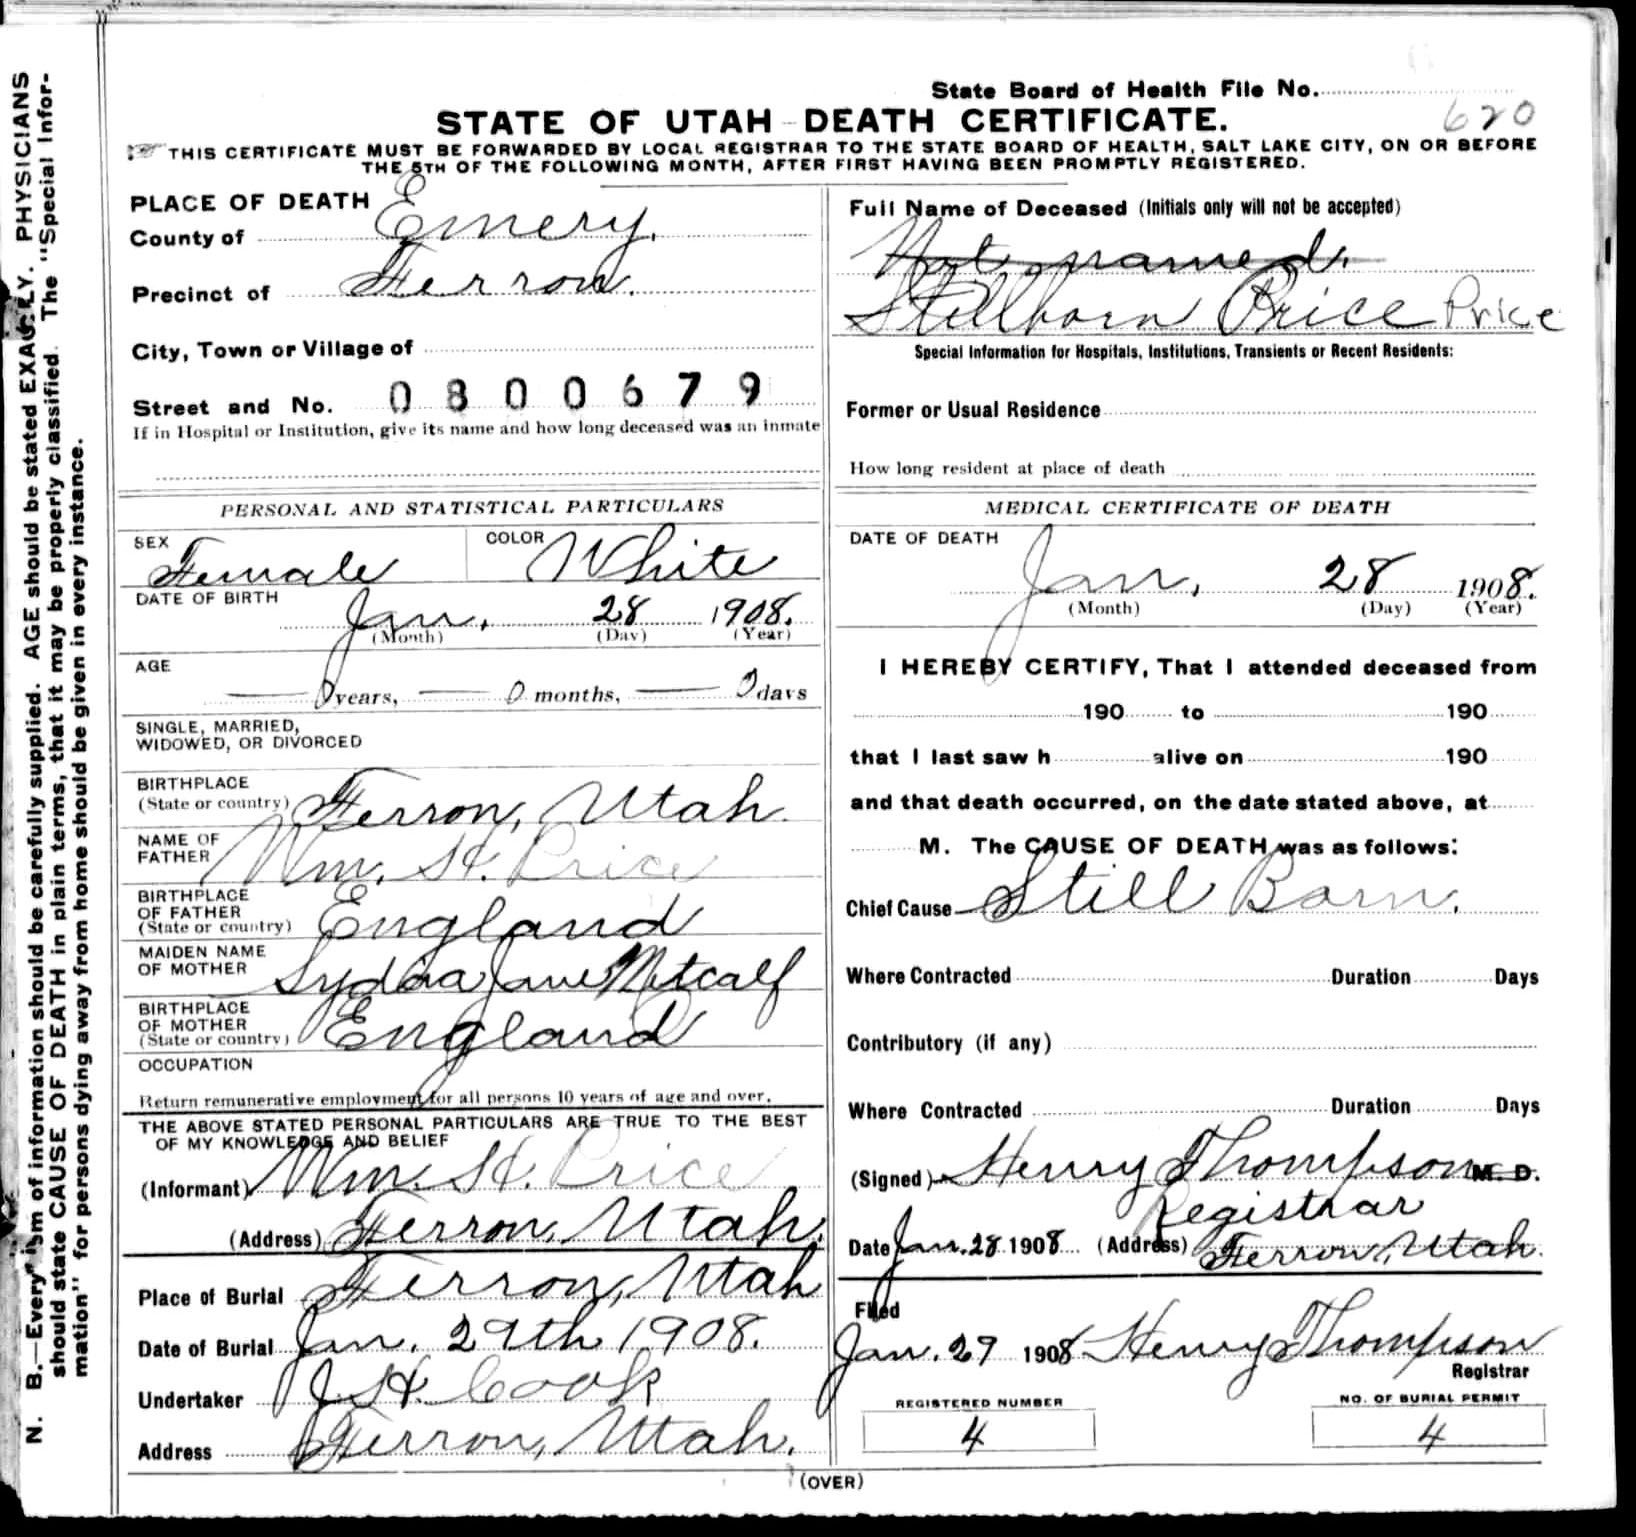 State Board of Health File No.
620
STATE OF UTAH DEATH CERTIFICATE.
THIS CERTIFICATE MUST BE FORWARDED BY LOCAL REGISTRAR TO THE STATE BOARD OF HEALTH, SALT LAKE CITY, ON OR BEFORE
THE 5TH OF THE FOLLOWING MONTH, AFTER FIRST HAVING BEEN PROMPTLY REGISTERED.
PLACE OF DEATH
County of Emery.
Precinct of Ferron.
City, Town or Village of
Street and No. 0800679
If in Hospital or Institution, give its name and how long deceased was an inmate
PERSONAL AND STATISTICAL PARTICULARS
SEX Female COLOR White
DATE OF BIRTH
Jan. 28 1908.
(Month) (Day) (Year)
AGE
0 years, 0 months, 0 days
SINGLE, MARRIED,
WIDOWED, OR DIVORCED
BIRTHPLACE
(State or country) Ferron, Utah.
NAME OF
FATHER Wm. H. Price
BIRTHPLACE
OF FATHER
(State or country) England
MAIDEN NAME
OF MOTHER Lydia Jane Metcalf
BIRTHPLACE
OF MOTHER
(State or country) England
OCCUPATION
Return remunerative employment for all persons 10 years of age and over.
THE ABOVE STATED PERSONAL PARTICULARS ARE TRUE TO THE BEST
OF MY KNOWLEDGE AND BELIEF
(Informant) Wm. H. Price
(Address) Ferron, Utah.
Place of Burial Ferron, Utah
Date of Burial Jan. 29th 1908.
Undertaker J. H. Cook
Address Ferron, Utah.
Full Name of Deceased (Initials only will not be accepted)
Not named.
Stillborn Price Price
Special Information for Hospitals, Institutions, Transients or Recent Residents:
Former or Usual Residence
How long resident at place of death
MEDICAL CERTIFICATE OF DEATH
DATE OF DEATH
Jan, 28 1908.
(Month) (Day) (Year)
I HEREBY CERTIFY, That I attended deceased from
190 to 190
that I last saw h alive on 190
and that death occurred, on the date stated above, at
M. The CAUSE OF DEATH was as follows:
Chief Cause Still Born.
Where Contracted Duration Days
Contributory (if any)
Where Contracted Duration Days
(Signed) Henry Thompson M. D.
Registrar
Date Jan. 28 1908 (Address) Ferron, Utah.
Filed
Jan. 29 1908 Henry Thompson
Registrar
REGISTERED NUMBER
4
NO. OF BURIAL PERMIT
4
(OVER)
N. B.—Every item of information should be carefully supplied. AGE should be stated EXACTLY. PHYSICIANS
should state CAUSE OF DEATH in plain terms, that it may be properly classified. The "Special Infor-
mation" for persons dying away from home should be given in every instance.